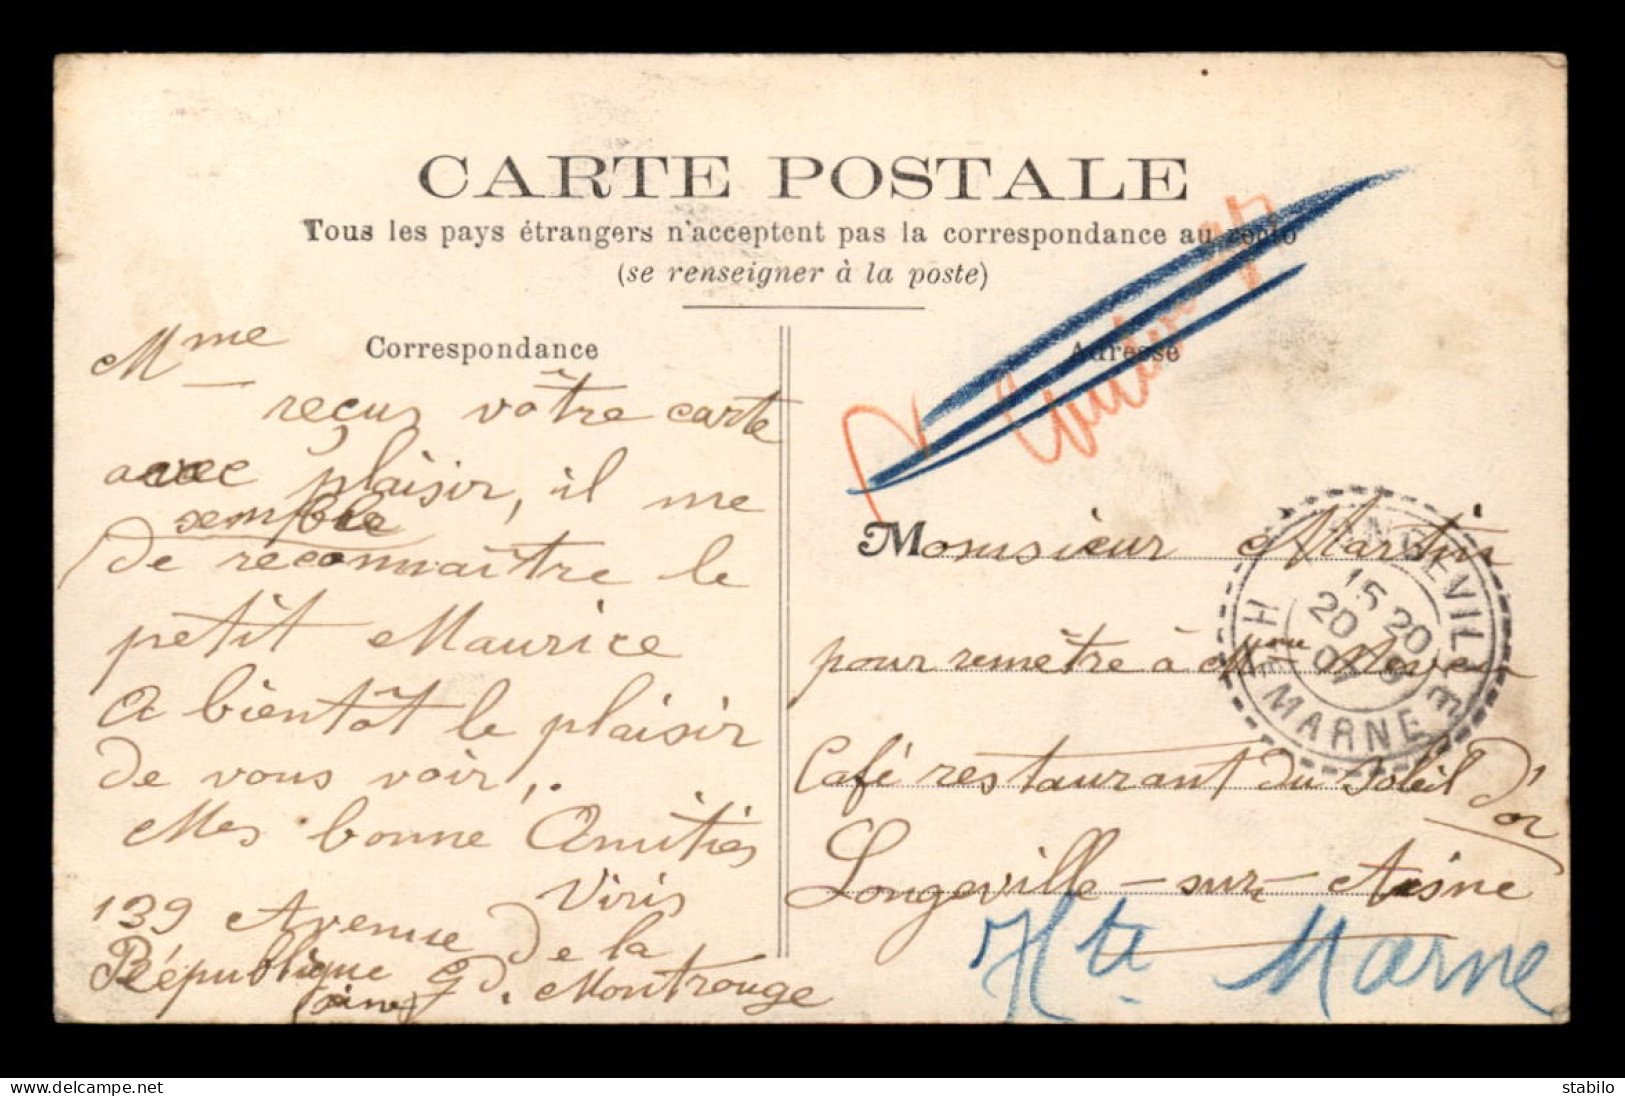 CARTE POSTALE
Tous les pays étrangers n'acceptent pas la correspondance au recto
(se renseigner à la poste)
Correspondance
Adresse
Mme
reçus vôtre carte
avec plaisir, il me
semble
de reconnaître le
petit Maurice
A bientôt le plaisir
de vous voir,.
Mes bonne Amitiés
Viris
139 Avenue de la
République Gd. Montrouge
Monsieur Martin
pour remêtre à Mme
Café restaurant du Soleil d'or
Longeville-sur-Aisne
Hte Marne
LONGEVILLE
15 20
20 9
07
HTE MARNE
www.delcampe.net
stabilo